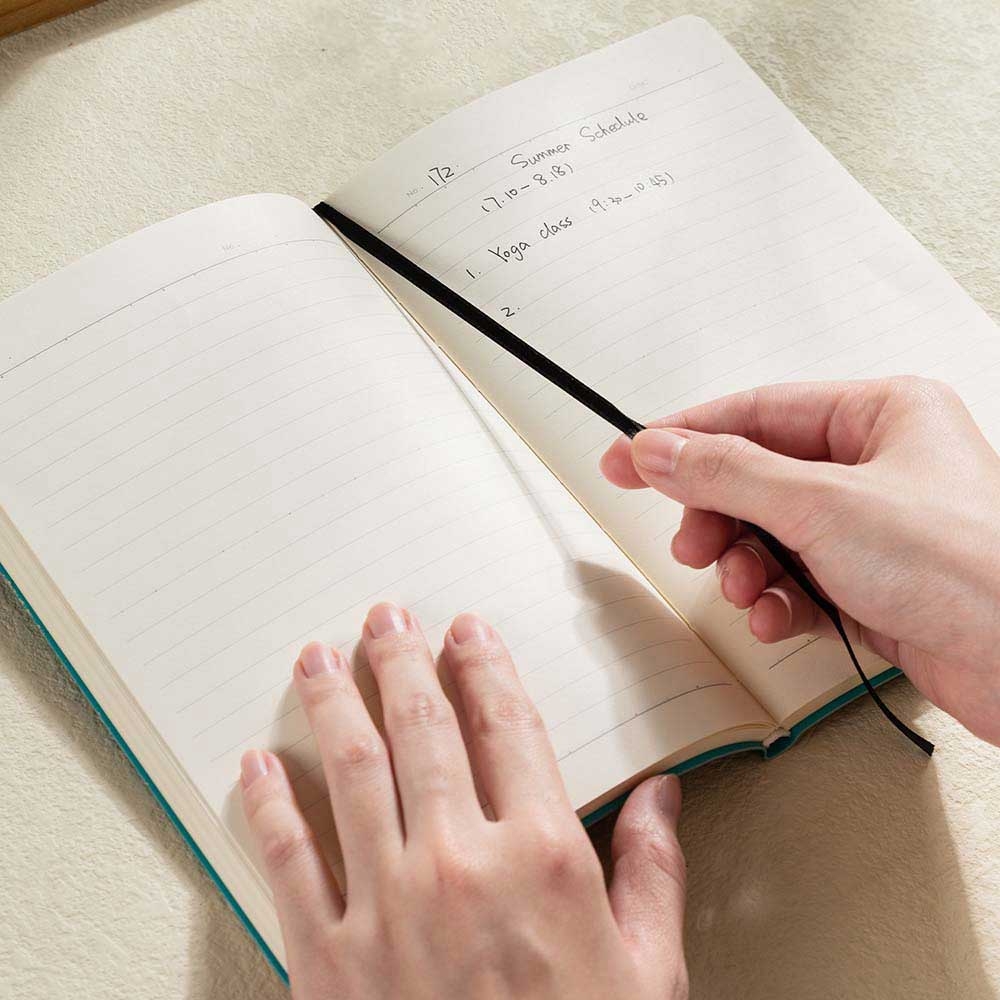 No.
Date
No. 172
Summer Schedule
(7.10 - 8.18)
1. Yoga class (9:30 - 10:45)
2.